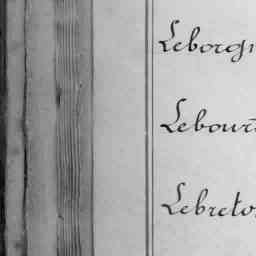 Leborgn
Lebours
Lebreton